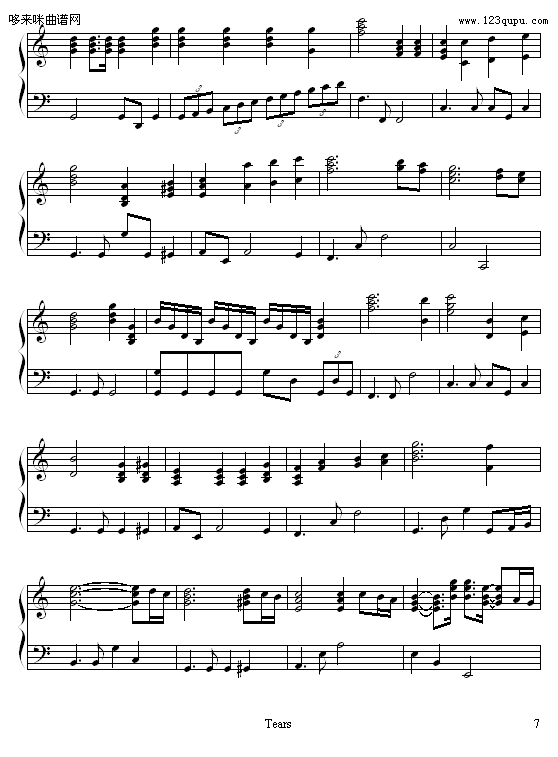 哆来咪曲谱网
www.123qupu.com
3
3
3
3
3
Tears
7